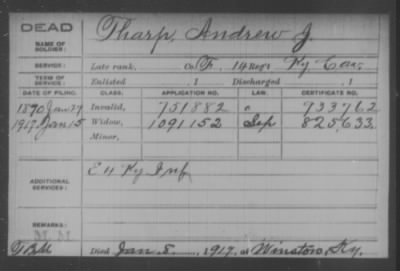 DEAD
NAME OF SOLDIER: Tharp, Andrew J.
SERVICE: Late rank, Co. F, 14 Reg't Ky Cav.
TERM OF SERVICE: Enlisted , 1 Discharged , 1
DATE OF FILING. CLASS. APPLICATION NO. LAW. CERTIFICATE NO.
1890 Jan 27 Invalid, 751882 c 733762
1917 Jan 15 Widow, 1091152 Sep 825,633
Minor,
ADDITIONAL SERVICES: E 11 Ky Inf
REMARKS:
M. M.
Died Jan. 8, 1917, at Winston, Ky.